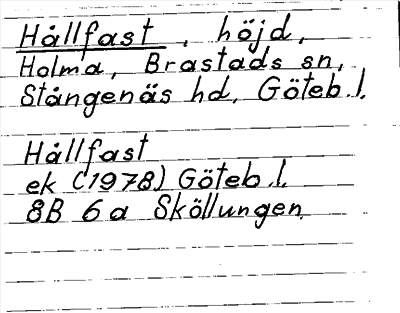 Hållfast, höjd,
Holma, Brastads sn,
Stångenäs hd, Göteb.l.
Hållfast
ek (1978) Göteb.l.
8B 6a Sköllungen